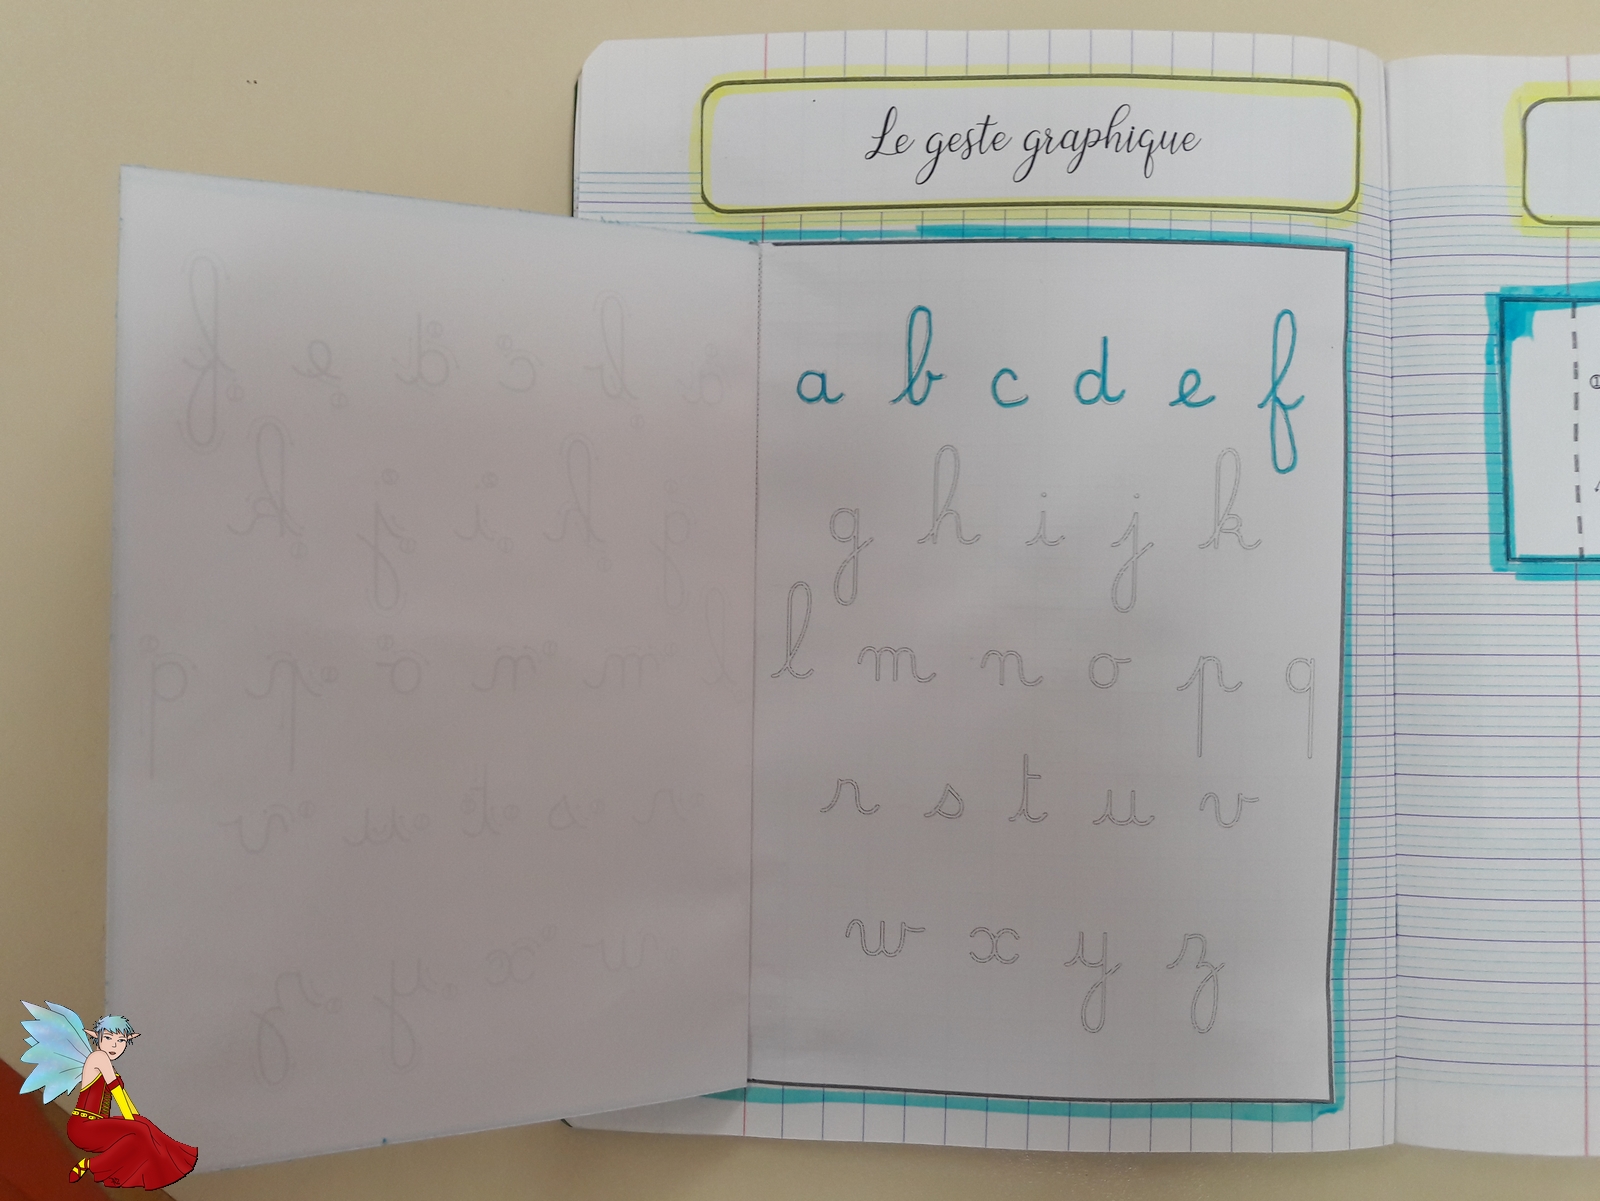 Le geste graphique
a b c d e f
g h i j k
l m n o p q
r s t u v
w x y z
①